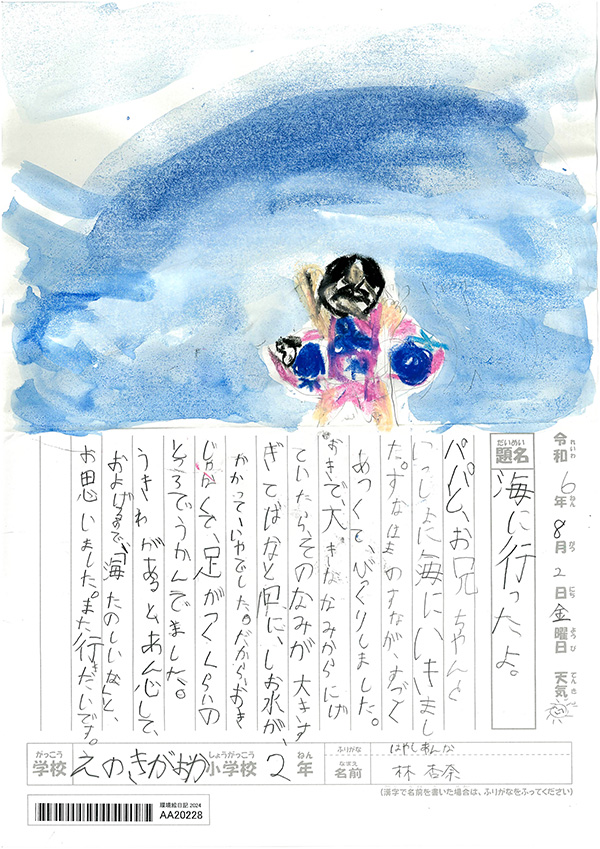 令和6年8月2日金曜日 天気
れいわ ねん がつ にち ようび てんき
だいめい
題名 海に行ったよ。
パパと、お兄ちゃんと
いっしょに海にいきまし
た。すなはまのすなが、すごく
あつくて、びっくりしました。
おきで、大きななみからにげ
ていたら、そのなみが大きす
ぎてはなと口に、しお水が、
かかっていやでした。だから、おき
じゃなくて、足がつくくらいの
ところでうかんでました。
うきわがあると、あん心して、
およげるので、「海たのしいな」と、
お思いました。また行きたいです。
がっこう しょうがっこう ねん
学校 えのきがおか小学校 2年
ふりがな はやしあんな
なまえ
名前 林 杏奈
(漢字で名前を書いた場合は、ふりがなをふってください)
環境絵日記 2024
AA20228